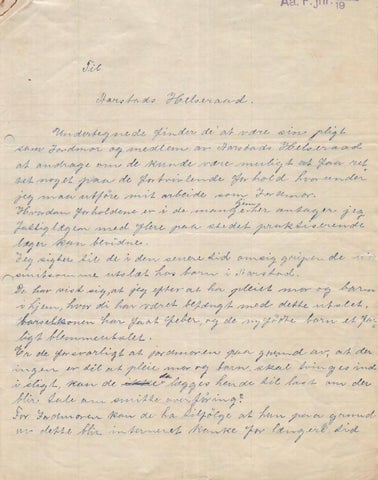 Aa. F. jnr. 19
Til
Aarstads Helseraad.
Undertegnede finder det at være sin pligt
som Jordmor og medlem av Aarstads Helseraad
at andrage om de kunde være muligt at faa ret
tet noget paa de fortvilende forhold hvorunder
jeg maa utföre mit arbeide som Jordmor.
Hvordan forholdene er i de mange hjem antager jeg
fattiglægen med flere paa stedet praktiserende
læger kan bevidne.
Jeg sigter til de i den senere tid omsiggripende
smitsomme utslæt hos barn i Aarstad.
De har vist sig, at jeg efter at ha pleiet mor og barn
i hjem, hvor di har været befængt med dette utslet,
barselkonen har faat feber, og de nyfödte barn et
blemmeutslet.
Er de forsvarligt at jordmoren paa grund av, at der
ingen er til at pleie mor og barn, skal tvinges ind
i sligt, kan de lægges hende til last om der
blir tale om smitte overföring?
For Jordmoren kan de ha tilfölge at hun paa grund
av dette blir interneret kanske for længere tid